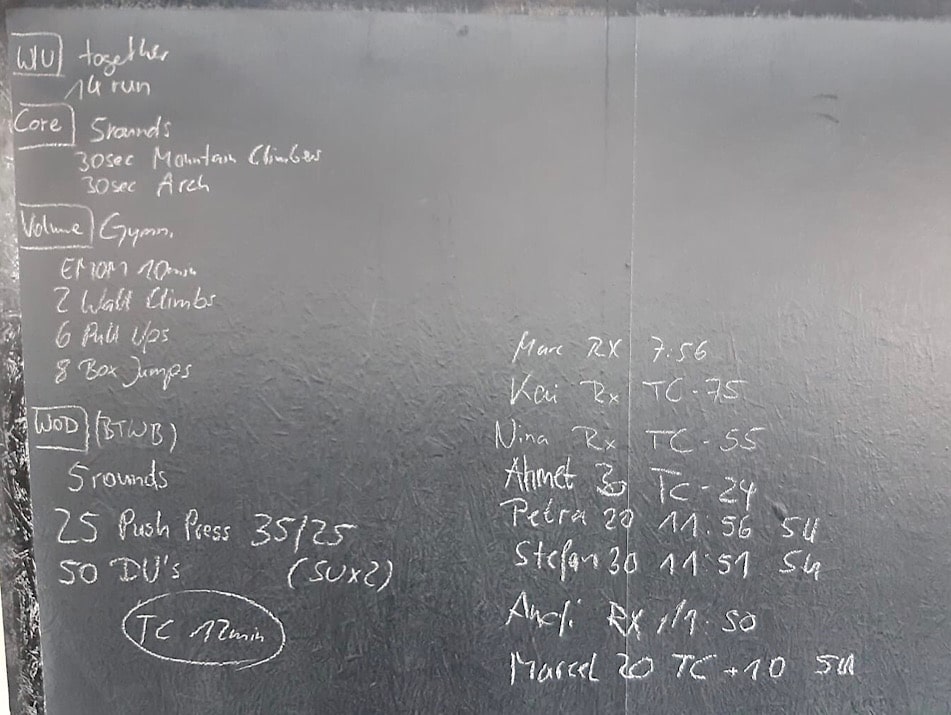 W/U together
1k run
Core 5 rounds
30sec Mountain Climbers
30sec Arch
Volume Gymn.
EMOM 10min
2 Wall Climbs
6 Pull Ups
8 Box Jumps
WOD (BTWB)
5 rounds
25 Push Press 35/25
50 DU's (SUx2)
TC 12min
Marc RX 7:56
Kai Rx TC-75
Nina Rx TC-55
Ahmet 30 TC-24
Petra 20 11:56 SU
Stefan 30 11:51 SU
Andi RX 11:50
Marcel 20 TC+10 SU